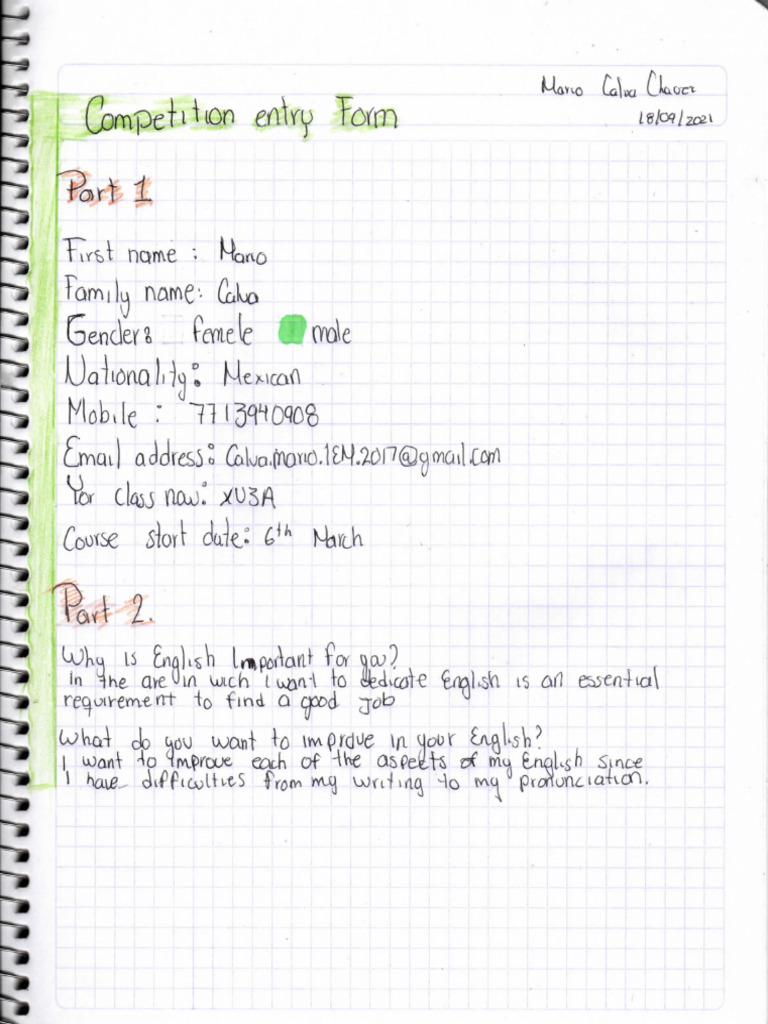 Mario Calva Chavez
18/09/2021
Competition entry Form
Part 1
First name : Mario
Family name: Calva
Gender: femele male
Nationality: Mexican
Mobile : 7713940908
Email address: Calva.mario.1EM.2017@gmail.com
Yor class naw: XU3A
Course start date: 6th March
Part 2.
Why is English Important for you?
In the are in wich I want to dedicate English is an essential
requirement to find a good job
What do you want to improve in your English?
I want to improve each of the aspects of my English since
I have difficulties from my writing to my pronunciation.